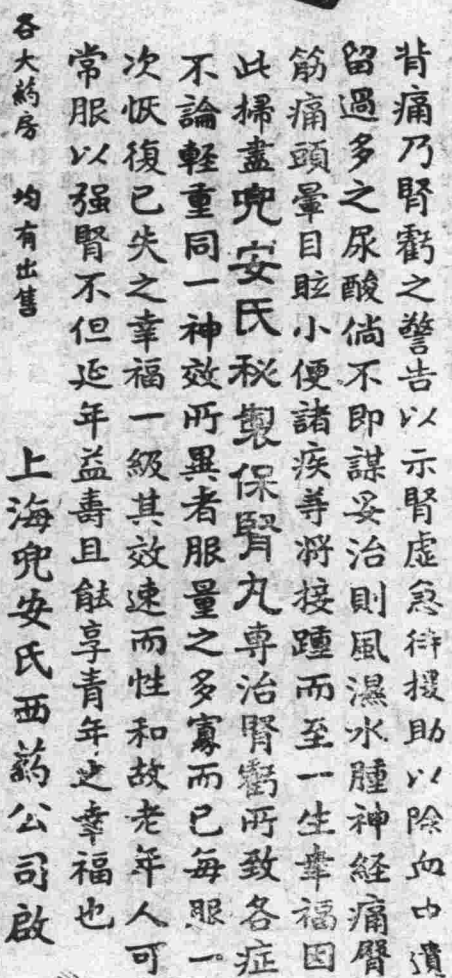 背痛乃腎虧之警告以示腎虛急待援助以除血中遺
留過多之尿酸倘不即謀妥治則風濕水腫神経痛臀
筋痛頭暈目眩小便諸疾等將接踵而至一生幸福因
此掃盡兜安氏秘製保腎丸專治腎虧所致各症
不論輕重同一神效所異者服量之多寡而已每服一
次恢復已失之幸福一級其效速而性和故老年人可
常服以强腎不但延年益壽且能享青年之幸福也
上海兜安氏西葯公司啟
各大葯房 均有出售